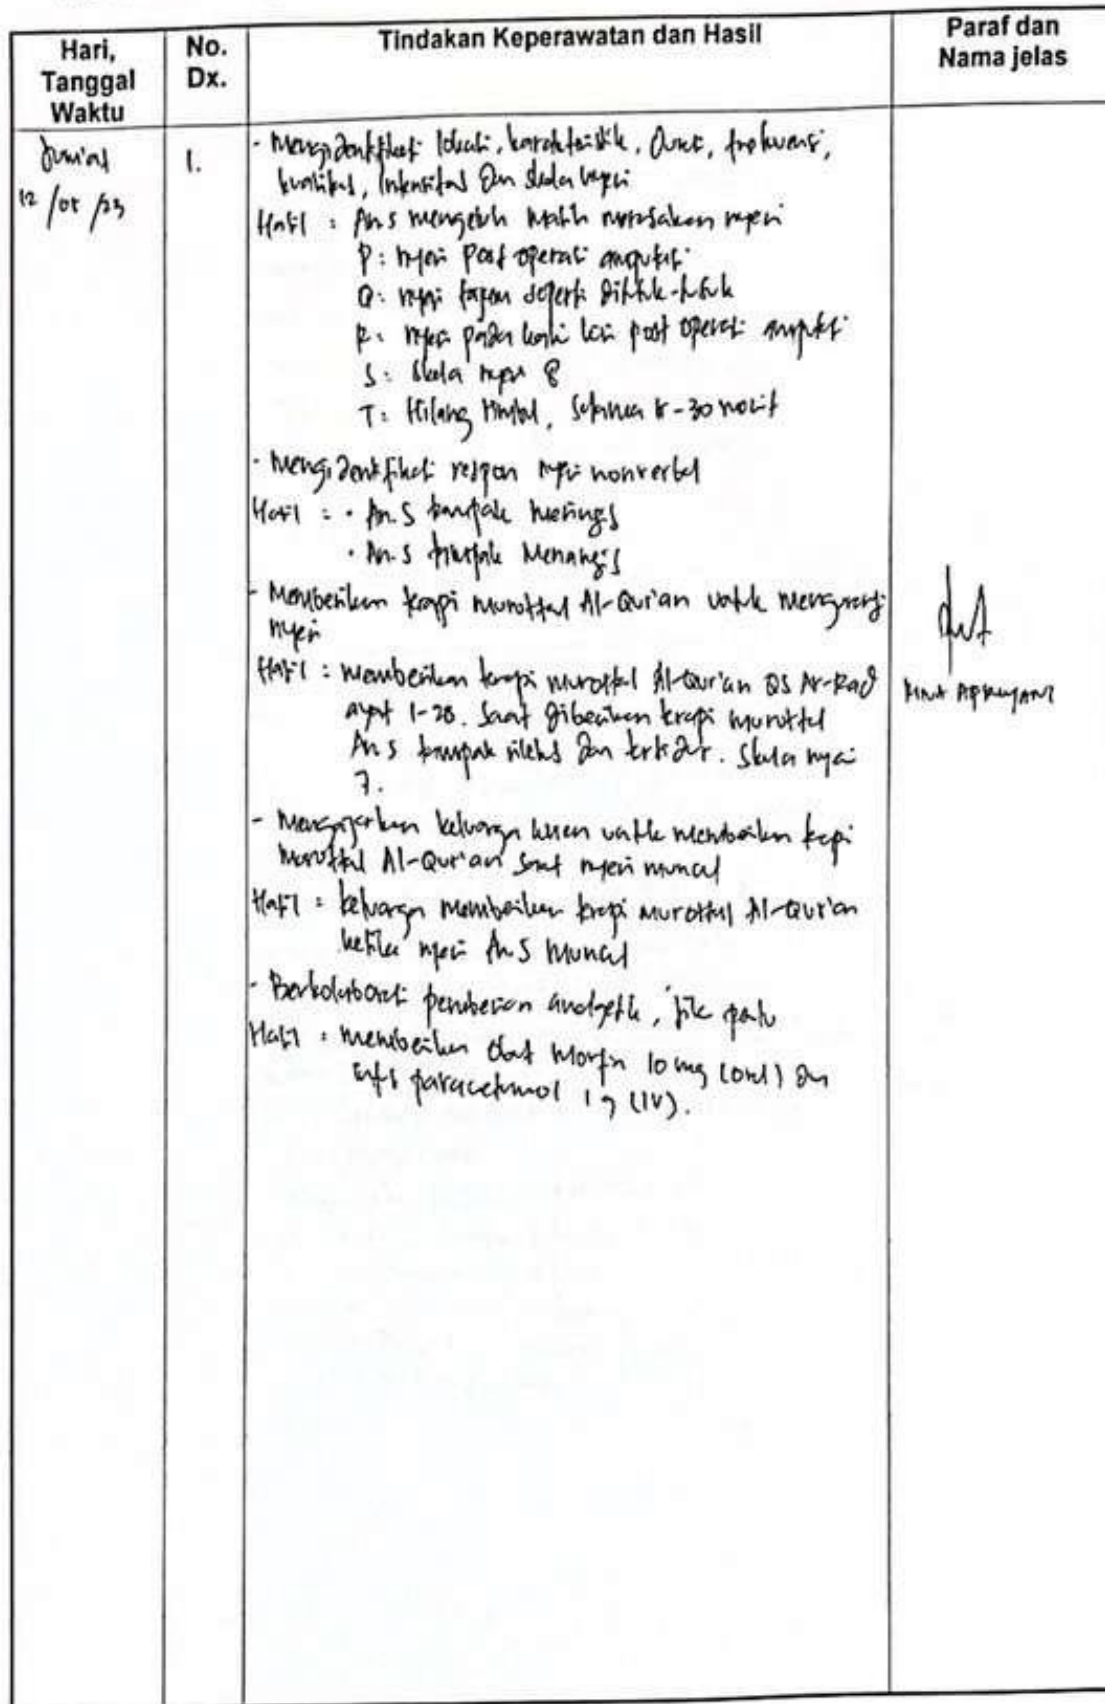 Hari,
Tanggal
Waktu
No.
Dx.
Tindakan Keperawatan dan Hasil
Paraf dan
Nama jelas
Jum'at
12/05/23
1.
- Mengidentifikasi lokasi, karakteristik, durasi, frekuensi,
kualitas, intensitas dan skala nyeri
Hasil : An.S mengeluh masih merasakan nyeri
P : nyeri post operasi amputasi
Q : nyeri tajam seperti ditusuk-tusuk
R : nyeri pada kaki post operasi amputasi
S : Skala nyeri 8
T : Hilang timbul, selama -30 menit
- Mengidentifikasi respon nyeri nonverbal
Hasil : • An.S tampak meringis
• An.S tampak Menangis
- Memberikan terapi murottal Al-Qur'an untuk mengurangi
nyeri
Hasil : memberikan terapi murottal Al-Qur'an QS Ar-Rad
ayat 1-28. Saat diberikan terapi murottal
An.S tampak rileks dan tertidur. Skala nyeri
7.
- Mengajarkan keluarga klien untuk memberikan terapi
murottal Al-Qur'an saat nyeri muncul
Hasil : keluarga memberikan terapi murottal Al-Qur'an
ketika nyeri An.S Muncul
- Berkolaborasi pemberian analgetik, jika perlu
Hasil : memberikan obat Morfin 10 mg (oral) dan
infus paracetamol 1 g (IV).